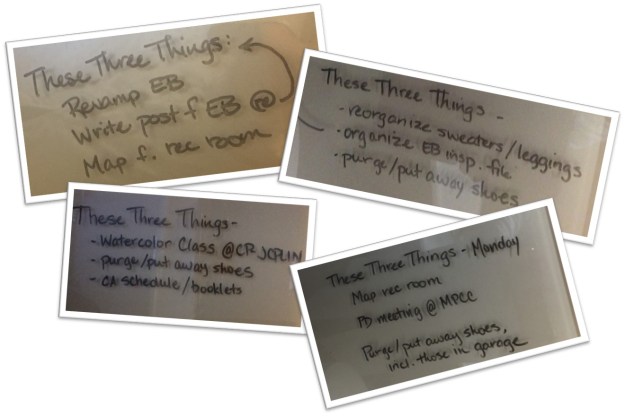 These Three Things:
Revamp EB
Write post f EB @
Map f. rec room
These Three Things -
- reorganize sweaters/leggings
- organize EB insp. file
- purge/put away shoes
These Three Things -
- Watercolor Class @CR JOPLIN
- purge/put away shoes
- CA schedule/booklets
These Three Things - Monday
Map rec room
PD meeting @ MPCC
Purge/put away shoes,
incl. those in garage